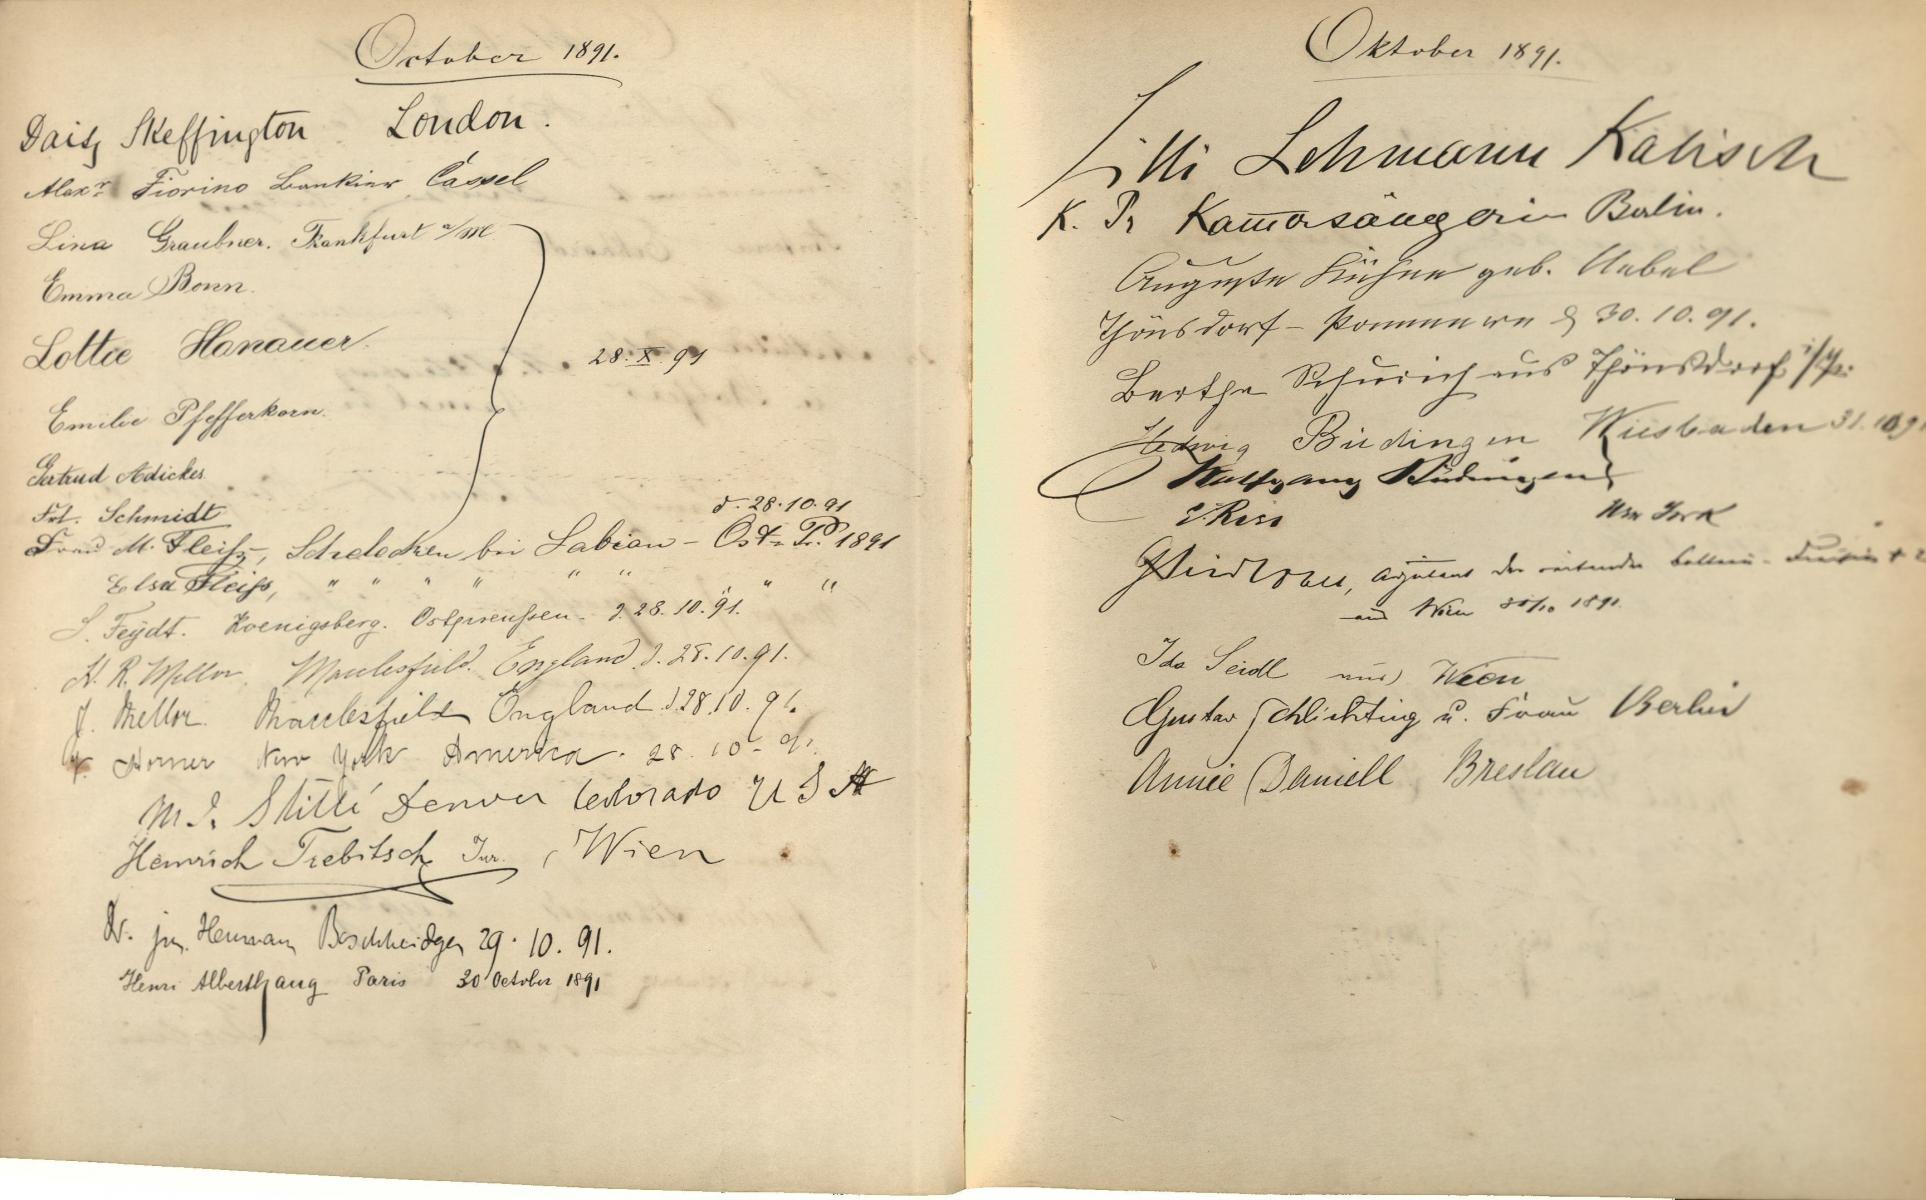 October 1891.
Daisy Skeffington London.
Alexr. Fiorino Bankier Cassel
Lina Graubner. Frankfurt a/M
Emma Bonn.
Lottie Hanauer.
28.X.91
Emilie Pfefferkorn.
Gertrud Adickes
Frl. Schmidt
d. 28.10.91
Frau M. Fleiß, Schelecken bei Labiau - Ost-Pr. 1891
Elsa Fleiss, " " " " " " " " "
S. Feydt. Koenigsberg. Ostpreußen. d. 28.10.91.
H. R. Mellor. Macclesfield. England. d. 28.10.91.
J. Mellor. Macclesfield England d. 28.10.91.
Horner New York America. 28.10.91.
M. J. Denver Colorado U S A
Heinrich Trebitsch Jur., Wien
Dr. jur. Hermann 29.10.91.
Henri Paris 30 October 1891
Oktober 1891.
Lilli Lehmann Kalisch
K. Pr Kammersängerin Berlin.
Auguste Kühne geb. Uebel
Thönsdorf - Pommern d 30.10.91.
Berthe aus Thönsdorf i/P.
Hedwig Büdingen Wiesbaden 31.10.91
Wolfgang Büdingen
New York
Adjutant der reitenden
aus Wien 1891.
Ida Seidl aus Wien
Gustav Schlichting u. Frau Berlin
Annie Daniell, Breslau